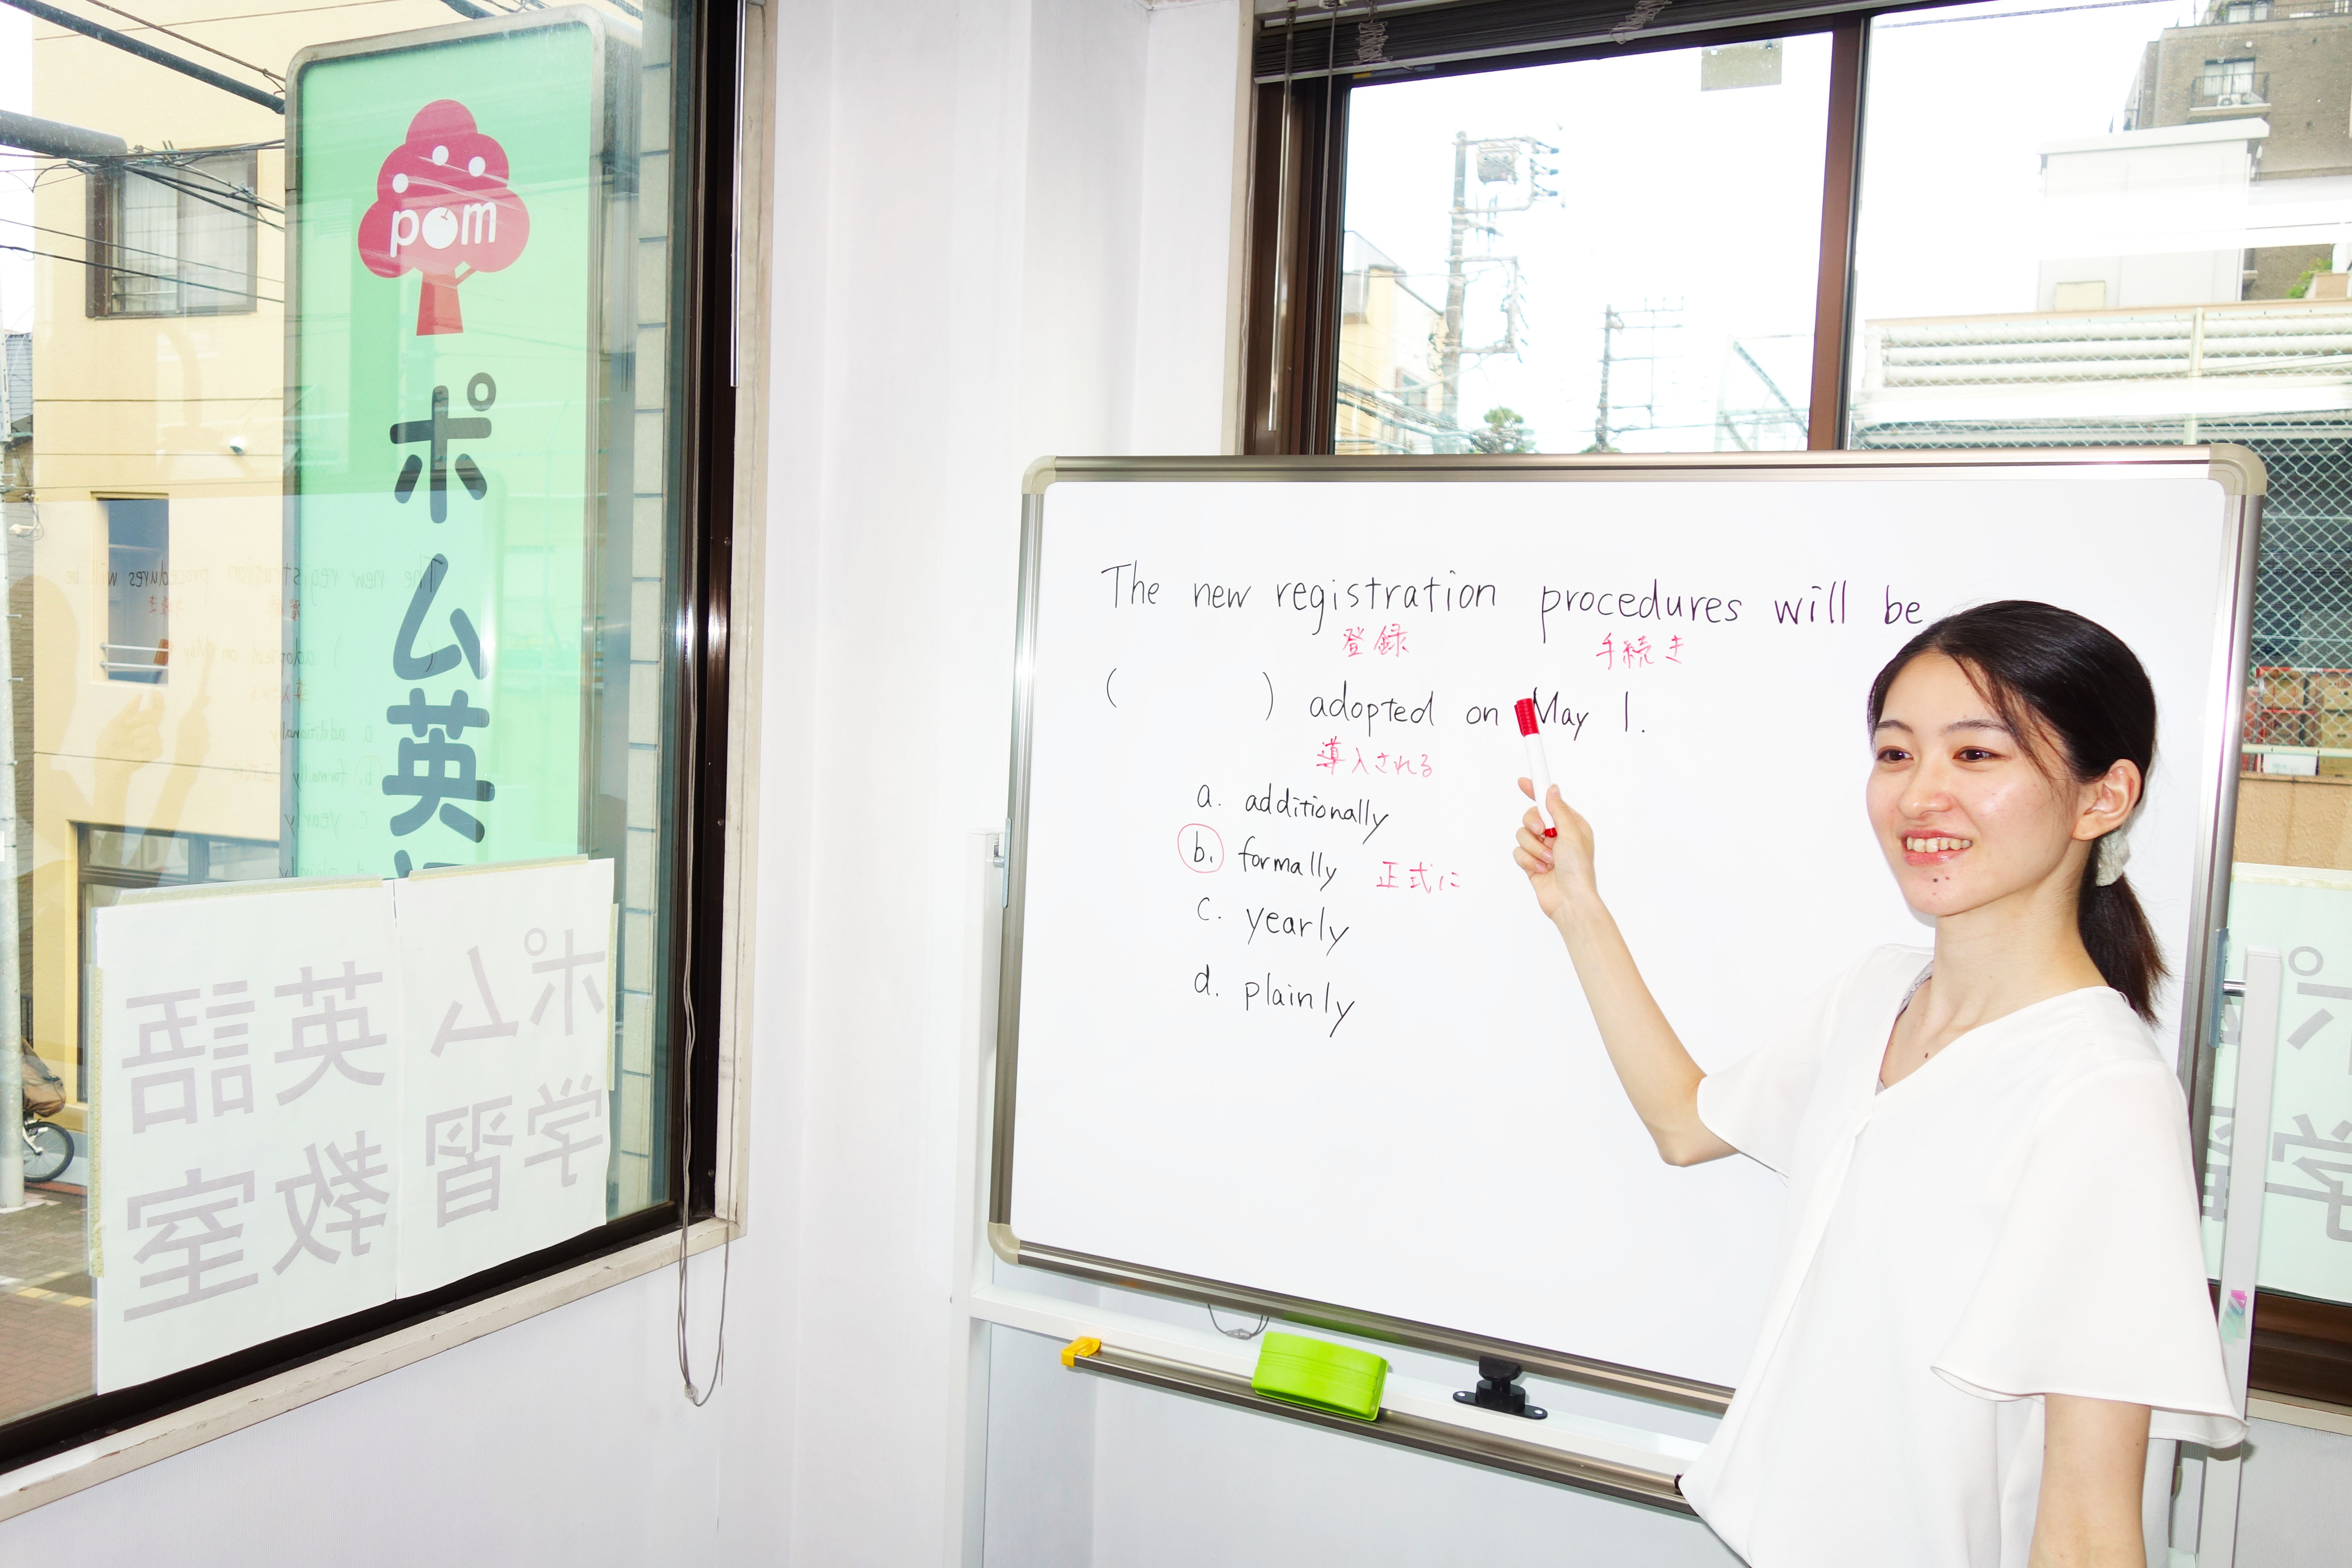 pom
ポム英
ポム英語
学習教室
The new registration procedures will be
登録 手続き
( ) adopted on May 1.
導入される
a. additionally
b. formally 正式に
c. yearly
d. plainly